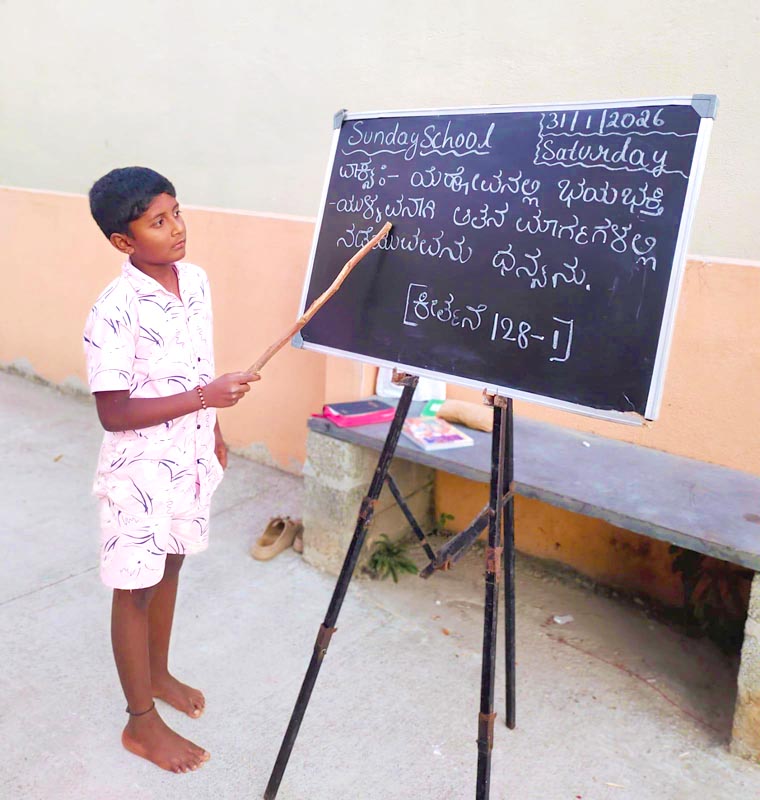 Sunday School
31/1/2026
Saturday
ವಾಕ್ಯ :- ಯೆಹೋವನಲ್ಲಿ ಭಯಭಕ್ತಿ
-ಯುಳ್ಳವನಾಗಿ ಆತನ ಮಾರ್ಗಗಳಲ್ಲಿ
ನಡೆಯುವವನು ಧನ್ಯನು.
[ಕೀರ್ತನೆ 128-1]